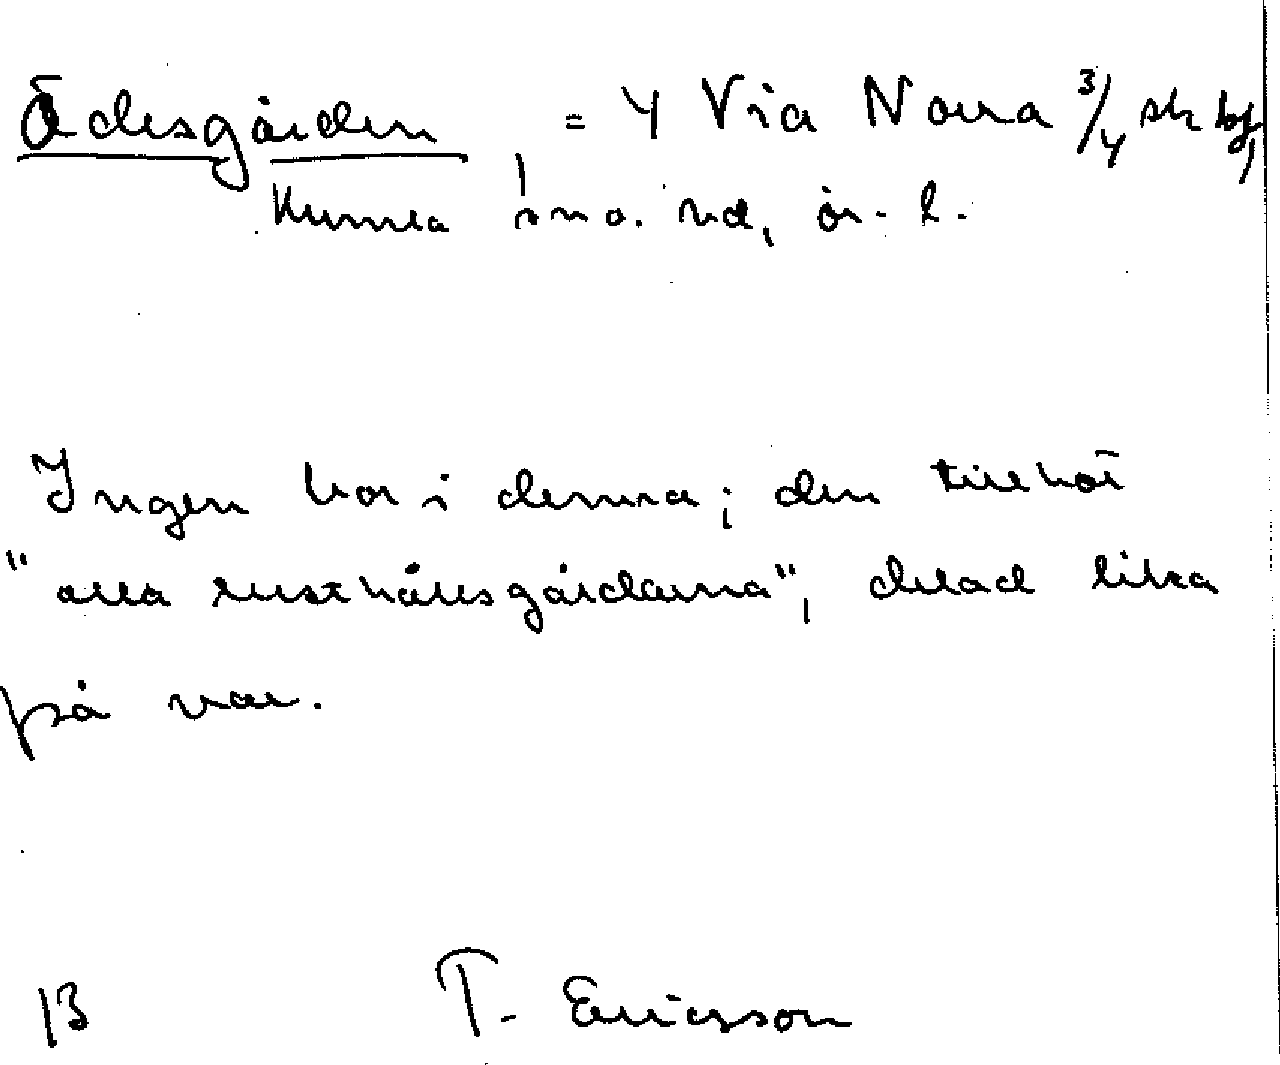 Ödesgården = 4 Via Norra 3/4 sk by,
Kumla sn o. hd, ör. l.
Ingen bor i denna; den tillhör
"alla rusthållsgårdarna", delad lika
på var.
13 T. Ericsson